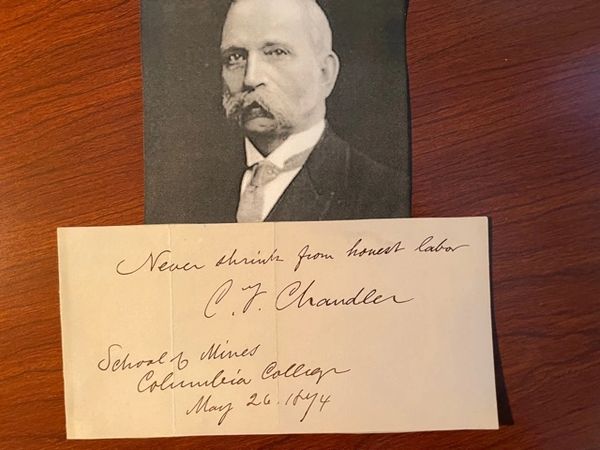 Never shrink from honest labor
C. F. Chandler
School of Mines
Columbia College
May 26. 1874